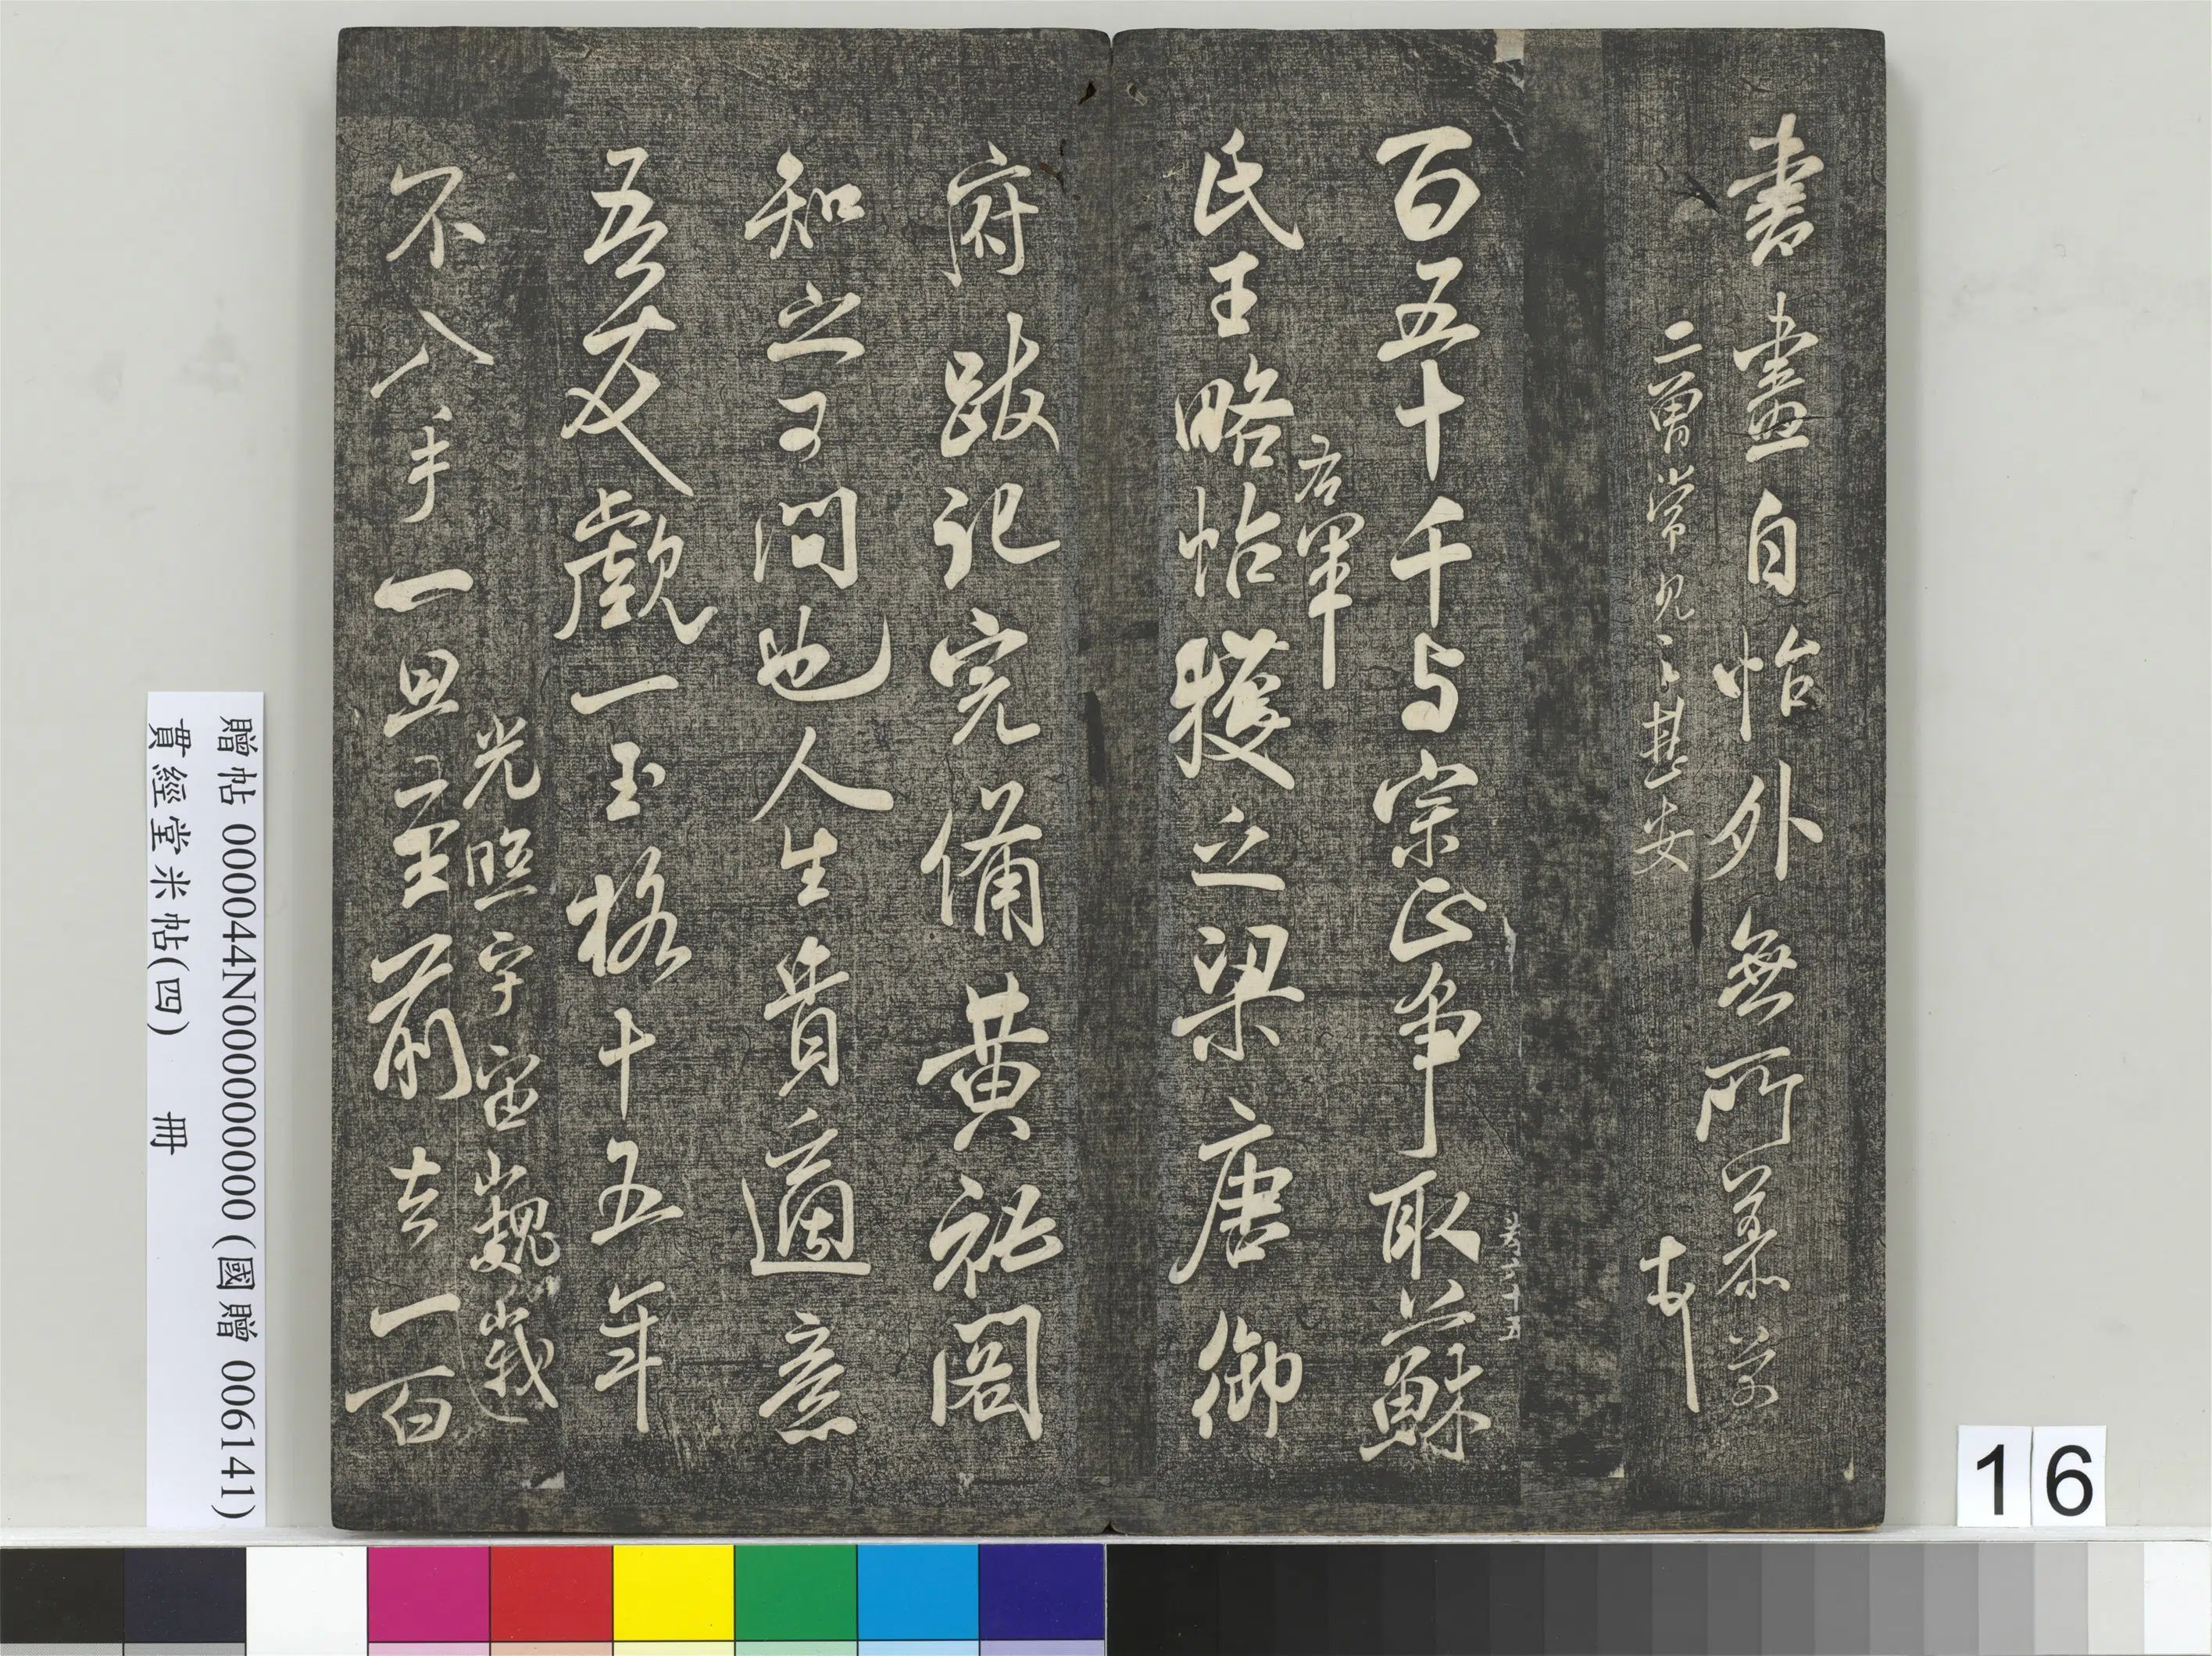 書畫自怡外無所慕芾
二曾常見之甚安
芾
百五十千与宗正爭取蘇
卷六十五
氏王略帖
右軍
獲之梁唐御
府跋記完備黃祕閣
知之可問也人生貴適意
吾友覷一玉格十五年
不入手一旦
光照宇宙巍峩
至前去一百
贈帖 000044N000000000 (國贈 006141)
貫經堂米帖(四) 冊
16